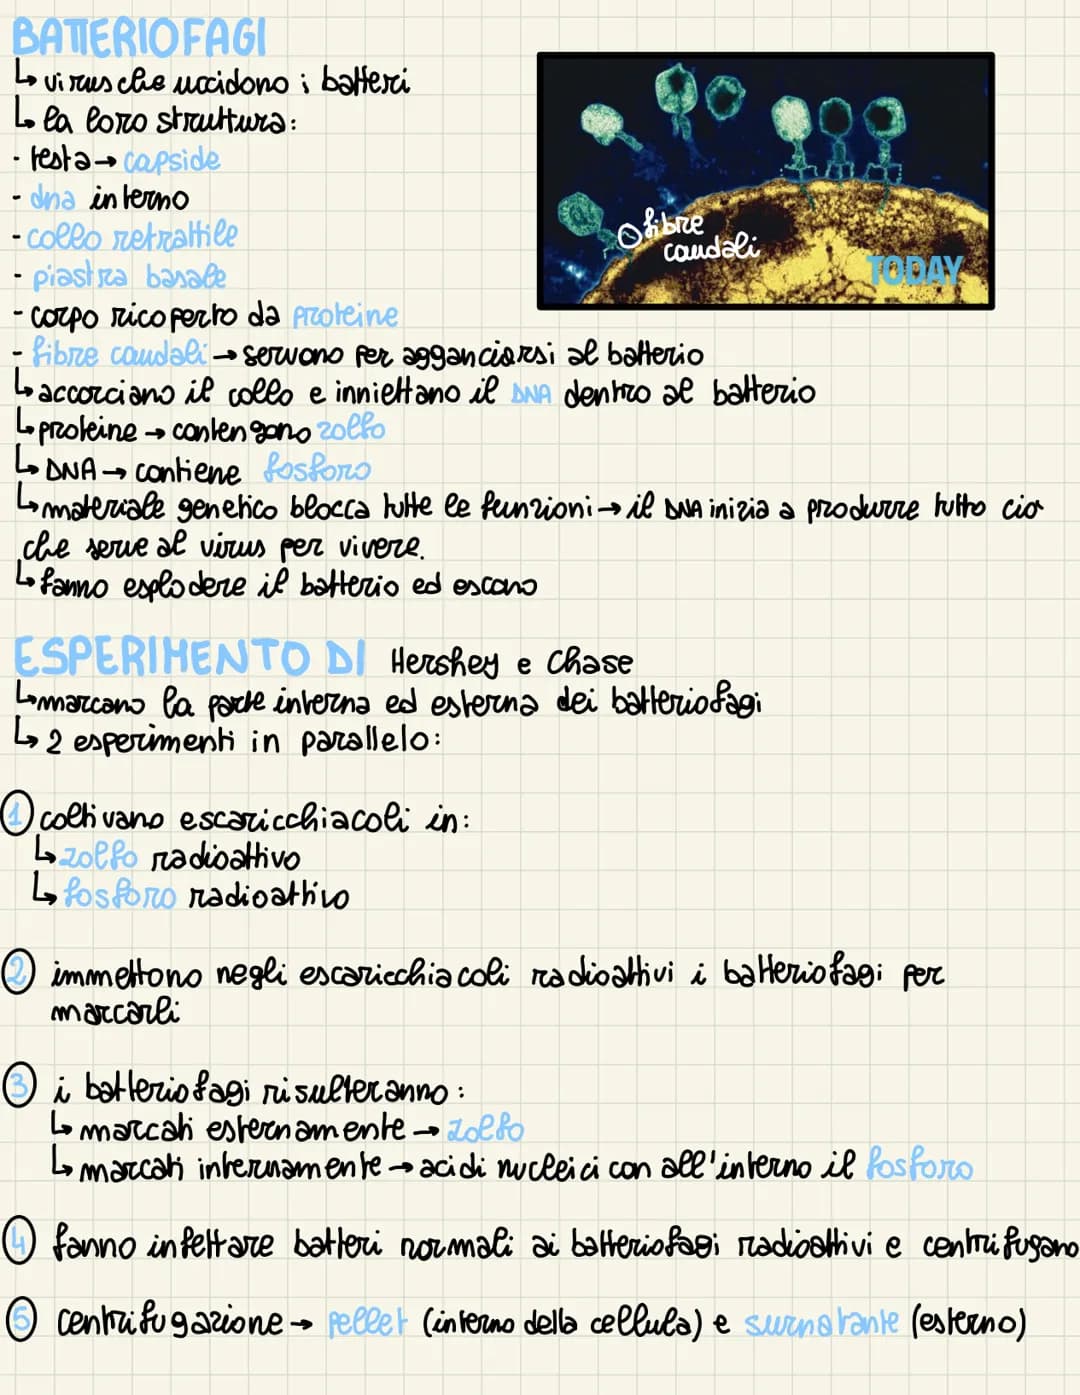 BATTERIOFAGI
↳ virus che uccidono i batteri
↳ la loro struttura:
- testa → capside
- dna interno
- collo retrattile
- piastra basale
- corpo ricoperto da proteine
- fibre caudali → servono per agganciarsi al batterio
↳ accorciano il collo e inniettano il DNA dentro al batterio
↳ proteine → contengono zolfo
↳ DNA → contiene fosforo
↳ materiale genetico blocca tutte le funzioni → il DNA inizia a produrre tutto ciò
che serve al virus per vivere.
↳ fanno esplodere il batterio ed escono
fibre
caudali
TODAY
ESPERIMENTO DI Hershey e Chase
↳ marcano la parte interna ed esterna dei batteriofagi
↳ 2 esperimenti in parallelo:
1 coltivano escaricchiacoli in:
↳ zolfo radioattivo
↳ fosforo radioattivo
2 immettono negli escaricchia coli radioattivi i batteriofagi per
marcarli
3 i batteriofagi risulteranno:
↳ marcati esternamente → zolfo
↳ marcati internamente → acidi nucleici con all'interno il fosforo
4 fanno infettare batteri normali ai batteriofagi radioattivi e centrifugano
5 centrifugazione → pellet (interno della cellula) e surnatante (esterno)